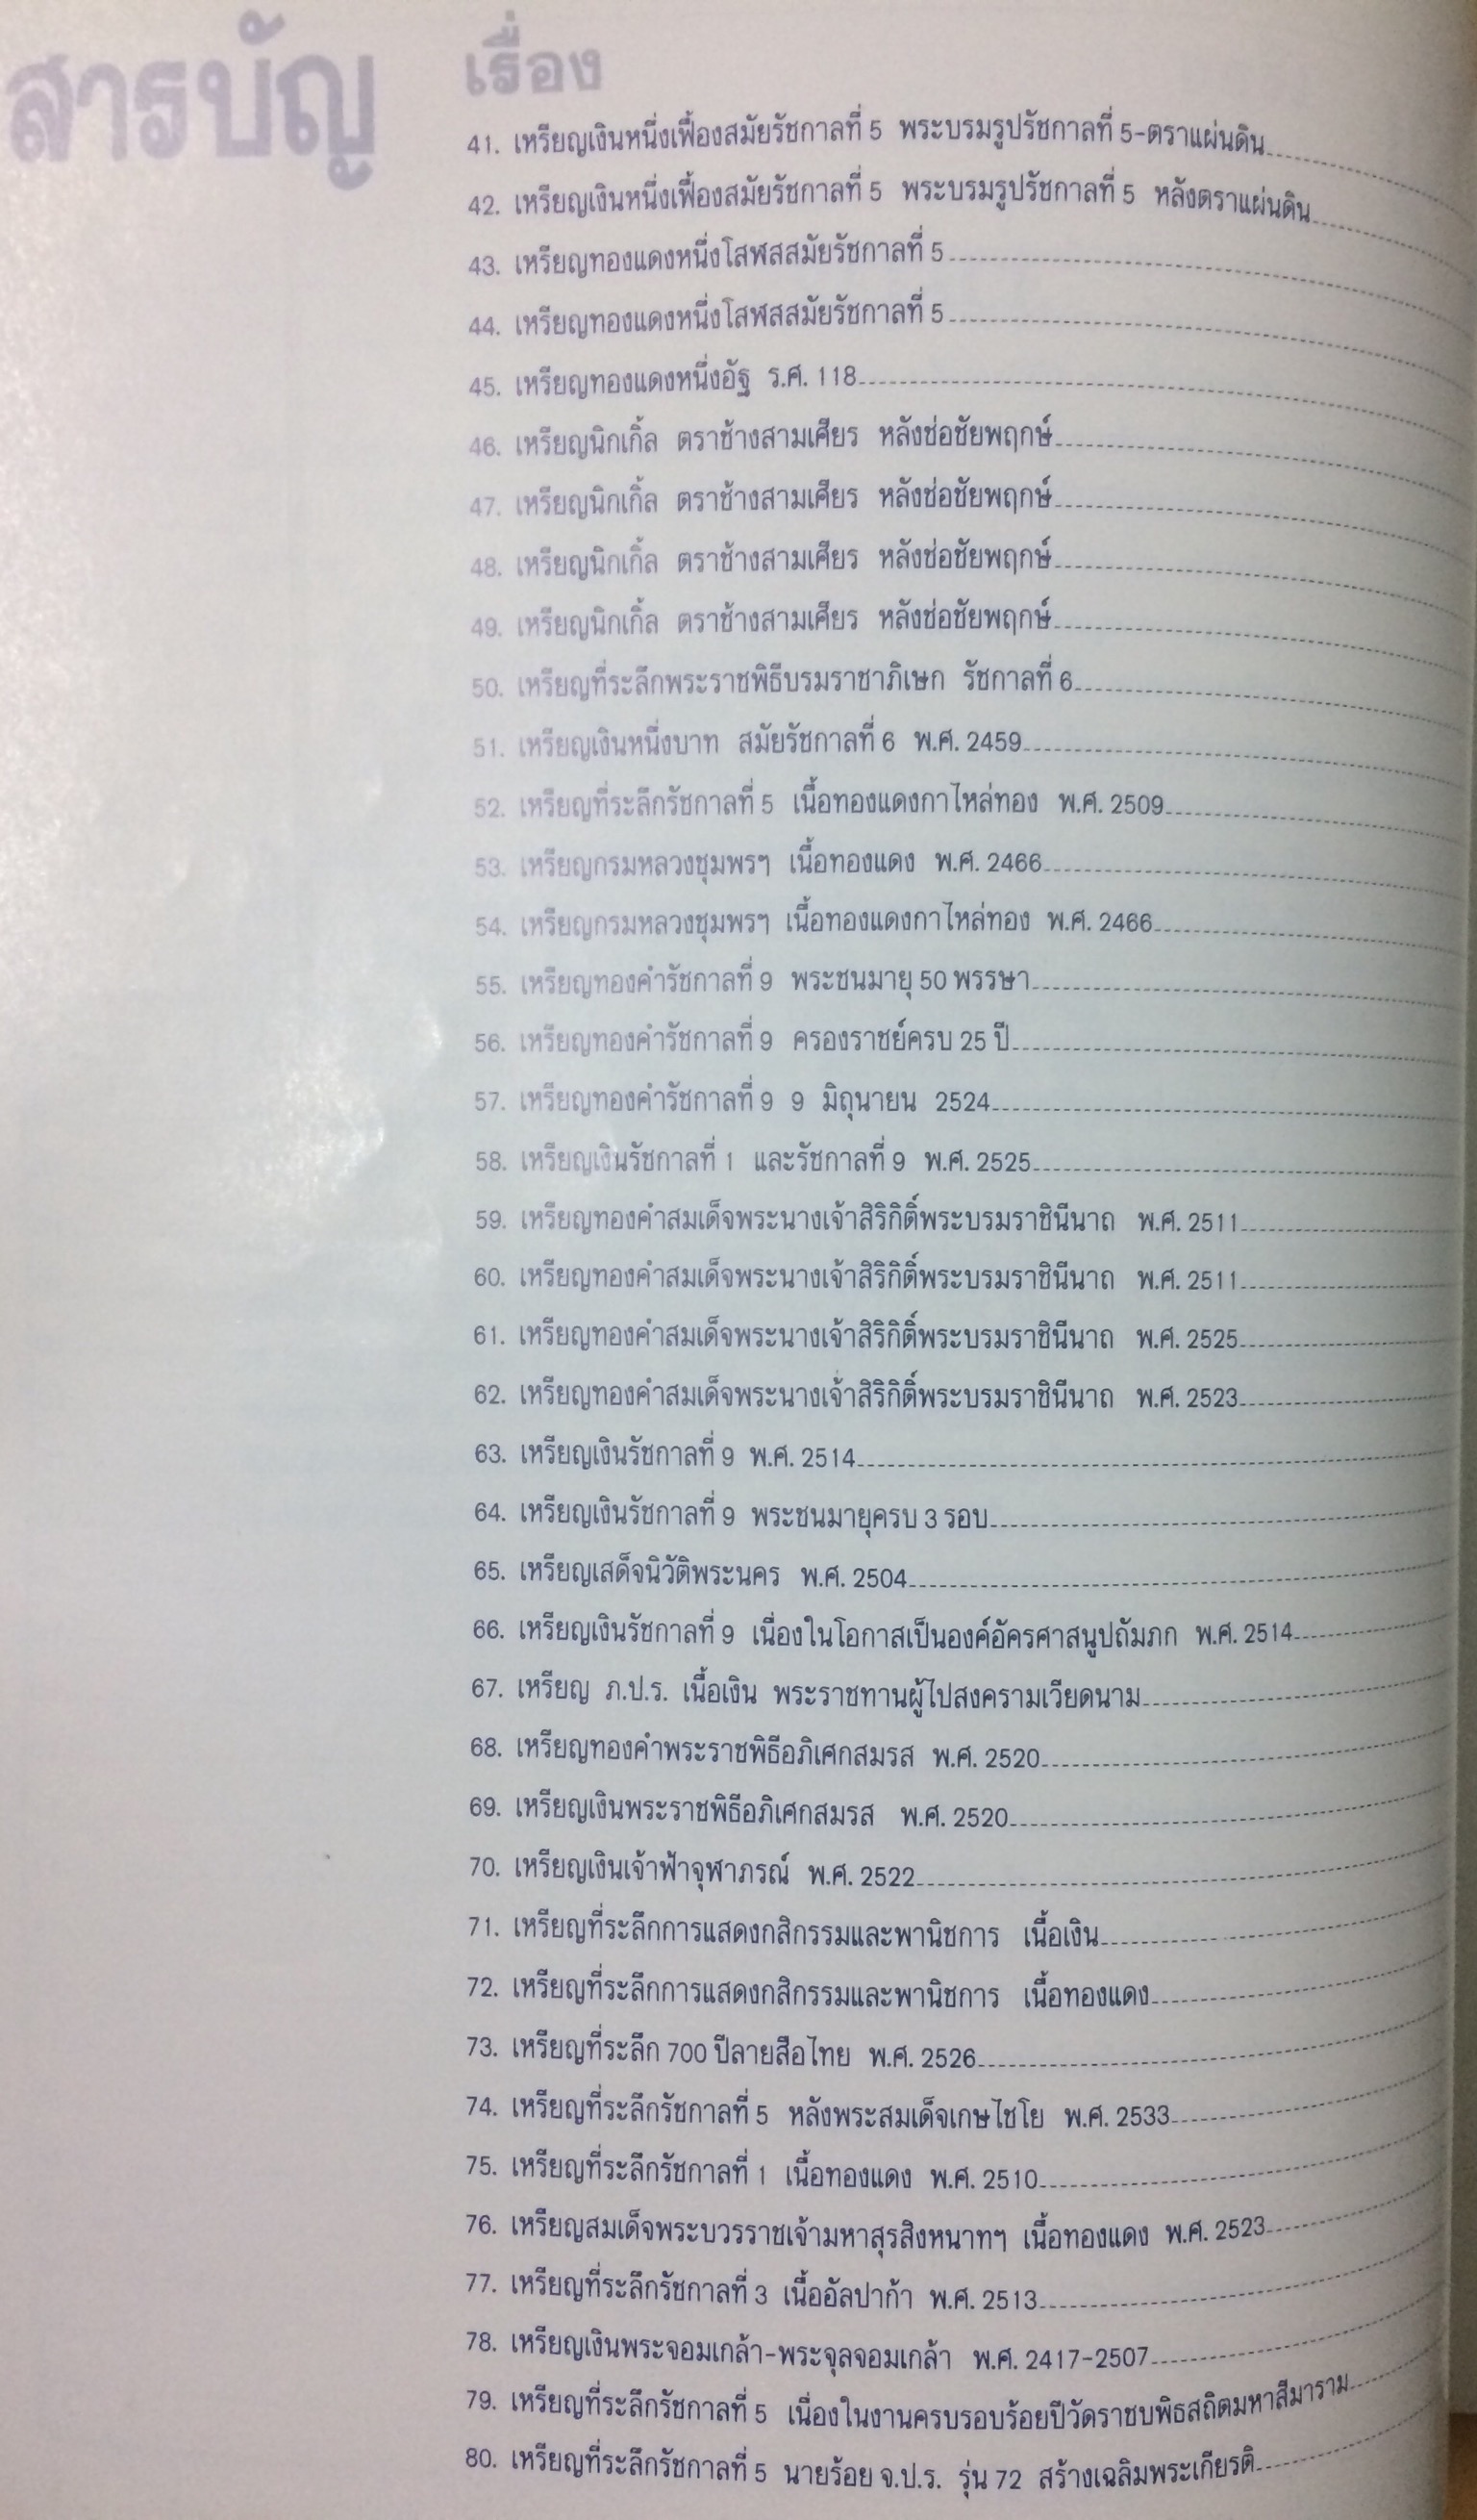 สารบัญ
เรื่อง
41. เหรียญเงินหนึ่งเฟื้องสมัยรัชกาลที่ 5 พระบรมรูปรัชกาลที่ 5-ตราแผ่นดิน
42. เหรียญเงินหนึ่งเฟื้องสมัยรัชกาลที่ 5 พระบรมรูปรัชกาลที่ 5 หลังตราแผ่นดิน
43. เหรียญทองแดงหนึ่งโสฬสสมัยรัชกาลที่ 5
44. เหรียญทองแดงหนึ่งโสฬสสมัยรัชกาลที่ 5
45. เหรียญทองแดงหนึ่งอัฐ ร.ศ. 118
46. เหรียญนิกเกิ้ล ตราช้างสามเศียร หลังช่อชัยพฤกษ์
47. เหรียญนิกเกิ้ล ตราช้างสามเศียร หลังช่อชัยพฤกษ์
48. เหรียญนิกเกิ้ล ตราช้างสามเศียร หลังช่อชัยพฤกษ์
49. เหรียญนิกเกิ้ล ตราช้างสามเศียร หลังช่อชัยพฤกษ์
50. เหรียญที่ระลึกพระราชพิธีบรมราชาภิเษก รัชกาลที่ 6
51. เหรียญเงินหนึ่งบาท สมัยรัชกาลที่ 6 พ.ศ. 2459
52. เหรียญที่ระลึกรัชกาลที่ 5 เนื้อทองแดงกาไหล่ทอง พ.ศ. 2509
53. เหรียญกรมหลวงชุมพรฯ เนื้อทองแดง พ.ศ. 2466
54. เหรียญกรมหลวงชุมพรฯ เนื้อทองแดงกาไหล่ทอง พ.ศ. 2466
55. เหรียญทองคำรัชกาลที่ 9 พระชนมายุ 50 พรรษา
56. เหรียญทองคำรัชกาลที่ 9 ครองราชย์ครบ 25 ปี
57. เหรียญทองคำรัชกาลที่ 9 9 มิถุนายน 2524
58. เหรียญเงินรัชกาลที่ 1 และรัชกาลที่ 9 พ.ศ. 2525
59. เหรียญทองคำสมเด็จพระนางเจ้าสิริกิติ์พระบรมราชินีนาถ พ.ศ. 2511
60. เหรียญทองคำสมเด็จพระนางเจ้าสิริกิติ์พระบรมราชินีนาถ พ.ศ. 2511
61. เหรียญทองคำสมเด็จพระนางเจ้าสิริกิติ์พระบรมราชินีนาถ พ.ศ. 2525
62. เหรียญทองคำสมเด็จพระนางเจ้าสิริกิติ์พระบรมราชินีนาถ พ.ศ. 2523
63. เหรียญเงินรัชกาลที่ 9 พ.ศ. 2514
64. เหรียญเงินรัชกาลที่ 9 พระชนมายุครบ 3 รอบ
65. เหรียญเสด็จนิวัติพระนคร พ.ศ. 2504
66. เหรียญเงินรัชกาลที่ 9 เนื่องในโอกาสเป็นองค์อัครศาสนูปถัมภก พ.ศ. 2514
67. เหรียญ ภ.ป.ร. เนื้อเงิน พระราชทานผู้ไปสงครามเวียดนาม
68. เหรียญทองคำพระราชพิธีอภิเศกสมรส พ.ศ. 2520
69. เหรียญเงินพระราชพิธีอภิเศกสมรส พ.ศ. 2520
70. เหรียญเงินเจ้าฟ้าจุฬาภรณ์ พ.ศ. 2522
71. เหรียญที่ระลึกการแสดงกสิกรรมและพานิชการ เนื้อเงิน
72. เหรียญที่ระลึกการแสดงกสิกรรมและพานิชการ เนื้อทองแดง
73. เหรียญที่ระลึก 700 ปีลายสือไทย พ.ศ. 2526
74. เหรียญที่ระลึกรัชกาลที่ 5 หลังพระสมเด็จเกษไชโย พ.ศ. 2533
75. เหรียญที่ระลึกรัชกาลที่ 1 เนื้อทองแดง พ.ศ. 2510
76. เหรียญสมเด็จพระบวรราชเจ้ามหาสุรสิงหนาทฯ เนื้อทองแดง พ.ศ. 2523
77. เหรียญที่ระลึกรัชกาลที่ 3 เนื้ออัลปาก้า พ.ศ. 2513
78. เหรียญเงินพระจอมเกล้า-พระจุลจอมเกล้า พ.ศ. 2417-2507
79. เหรียญที่ระลึกรัชกาลที่ 5 เนื่องในงานครบรอบร้อยปีวัดราชบพิธสถิตมหาสีมาราม
80. เหรียญที่ระลึกรัชกาลที่ 5 นายร้อย จ.ป.ร. รุ่น 72 สร้างเฉลิมพระเกียรติ